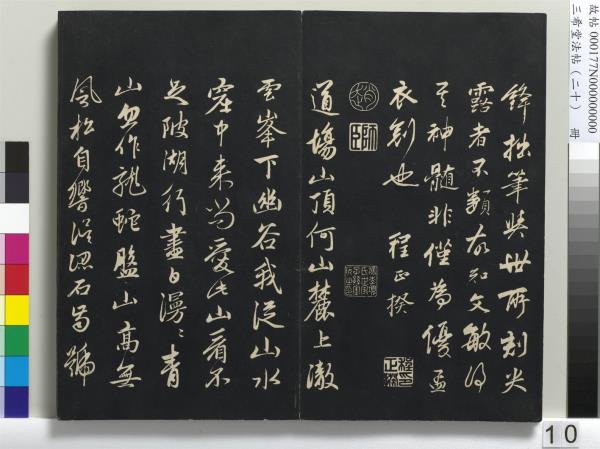 故帖 000177N000000000
三希堂法帖（二十） 冊
鋒拙筆與世所刻尖
露者不類故知文敏得
其神髓非僅為優孟
衣冠也 程正揆
道場山頂何山麓上徹
雲峯下幽谷我從山水
窟中來尚愛此山看不
足陂湖行盡白漫漫青
山忽作龍蛇盤山高無
風松自響誤認石齒號
10